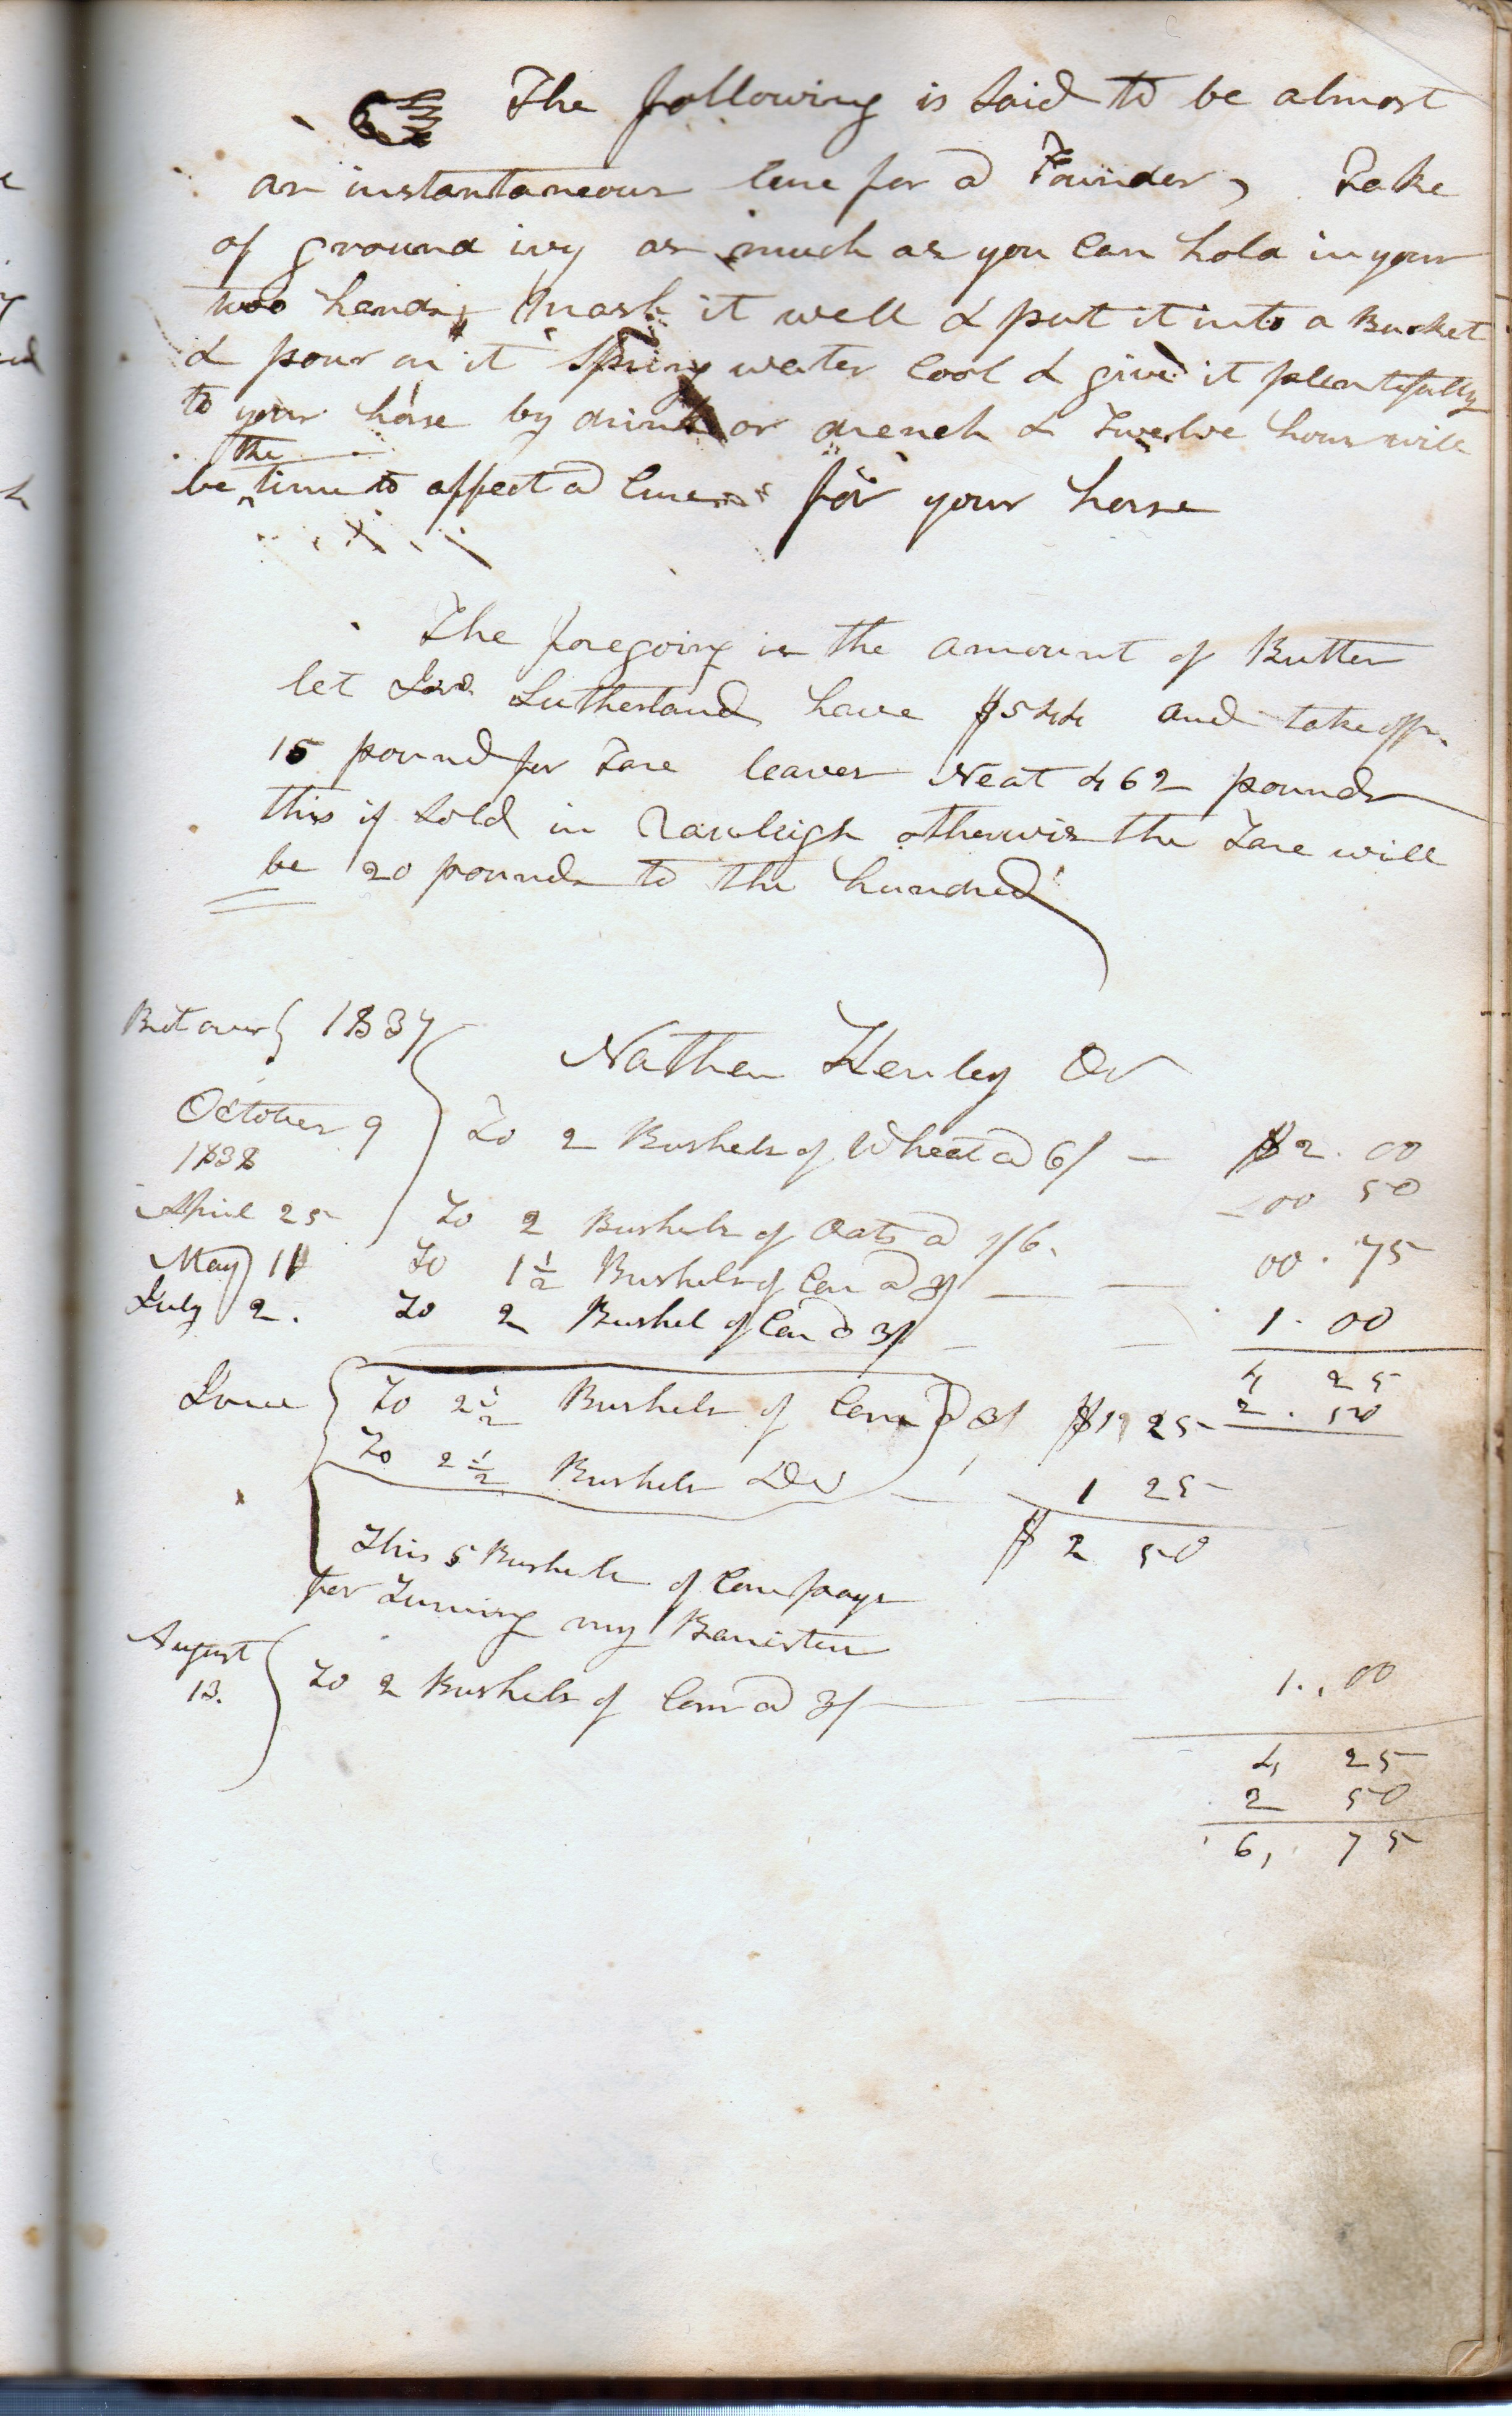 The following is Said to be almost
an instantaneous Cure for a Founder, Take
of ground ivy as much as you Can hold in your
two hands, Mash it well & put it into a Bucket
& pour on it Spring water Cool & give it plentifully
to your horse by drink or drench & Twelve hour will
the
be time to affect a Cure for your horse
The foregoing is the amount of Butter
let Sutherland have $544 and take off
15 pound for Tare leaves Neat 462 pounds
this if Sold in Rawleigh otherwis the Tare will
be 20 pounds to the hundred
Brot over 1837
Nathen Henley Dr
October 9 To 2 Bushels of Wheat a 6/ — $2.00
1838
April 25 To 2 Bushels of Oats a 1/6. 00 50
May 11 To 1 1/2 Bushels of Corn a 3/ — 00.75
July 2. To 2 Bushel of Corn a 3/ — 1.00
4 25
June To 2 1/2 Bushels of Corn a 3/ $1, 25 2.50
To 2 1/2 Bushels Do — 1 25
$ 2 50
This 5 Bushels of Corn pays
for Turning my Banisters
August
13. To 2 Bushels of Corn a 3/ — 1.,00
4, 25
2 50
6, 75